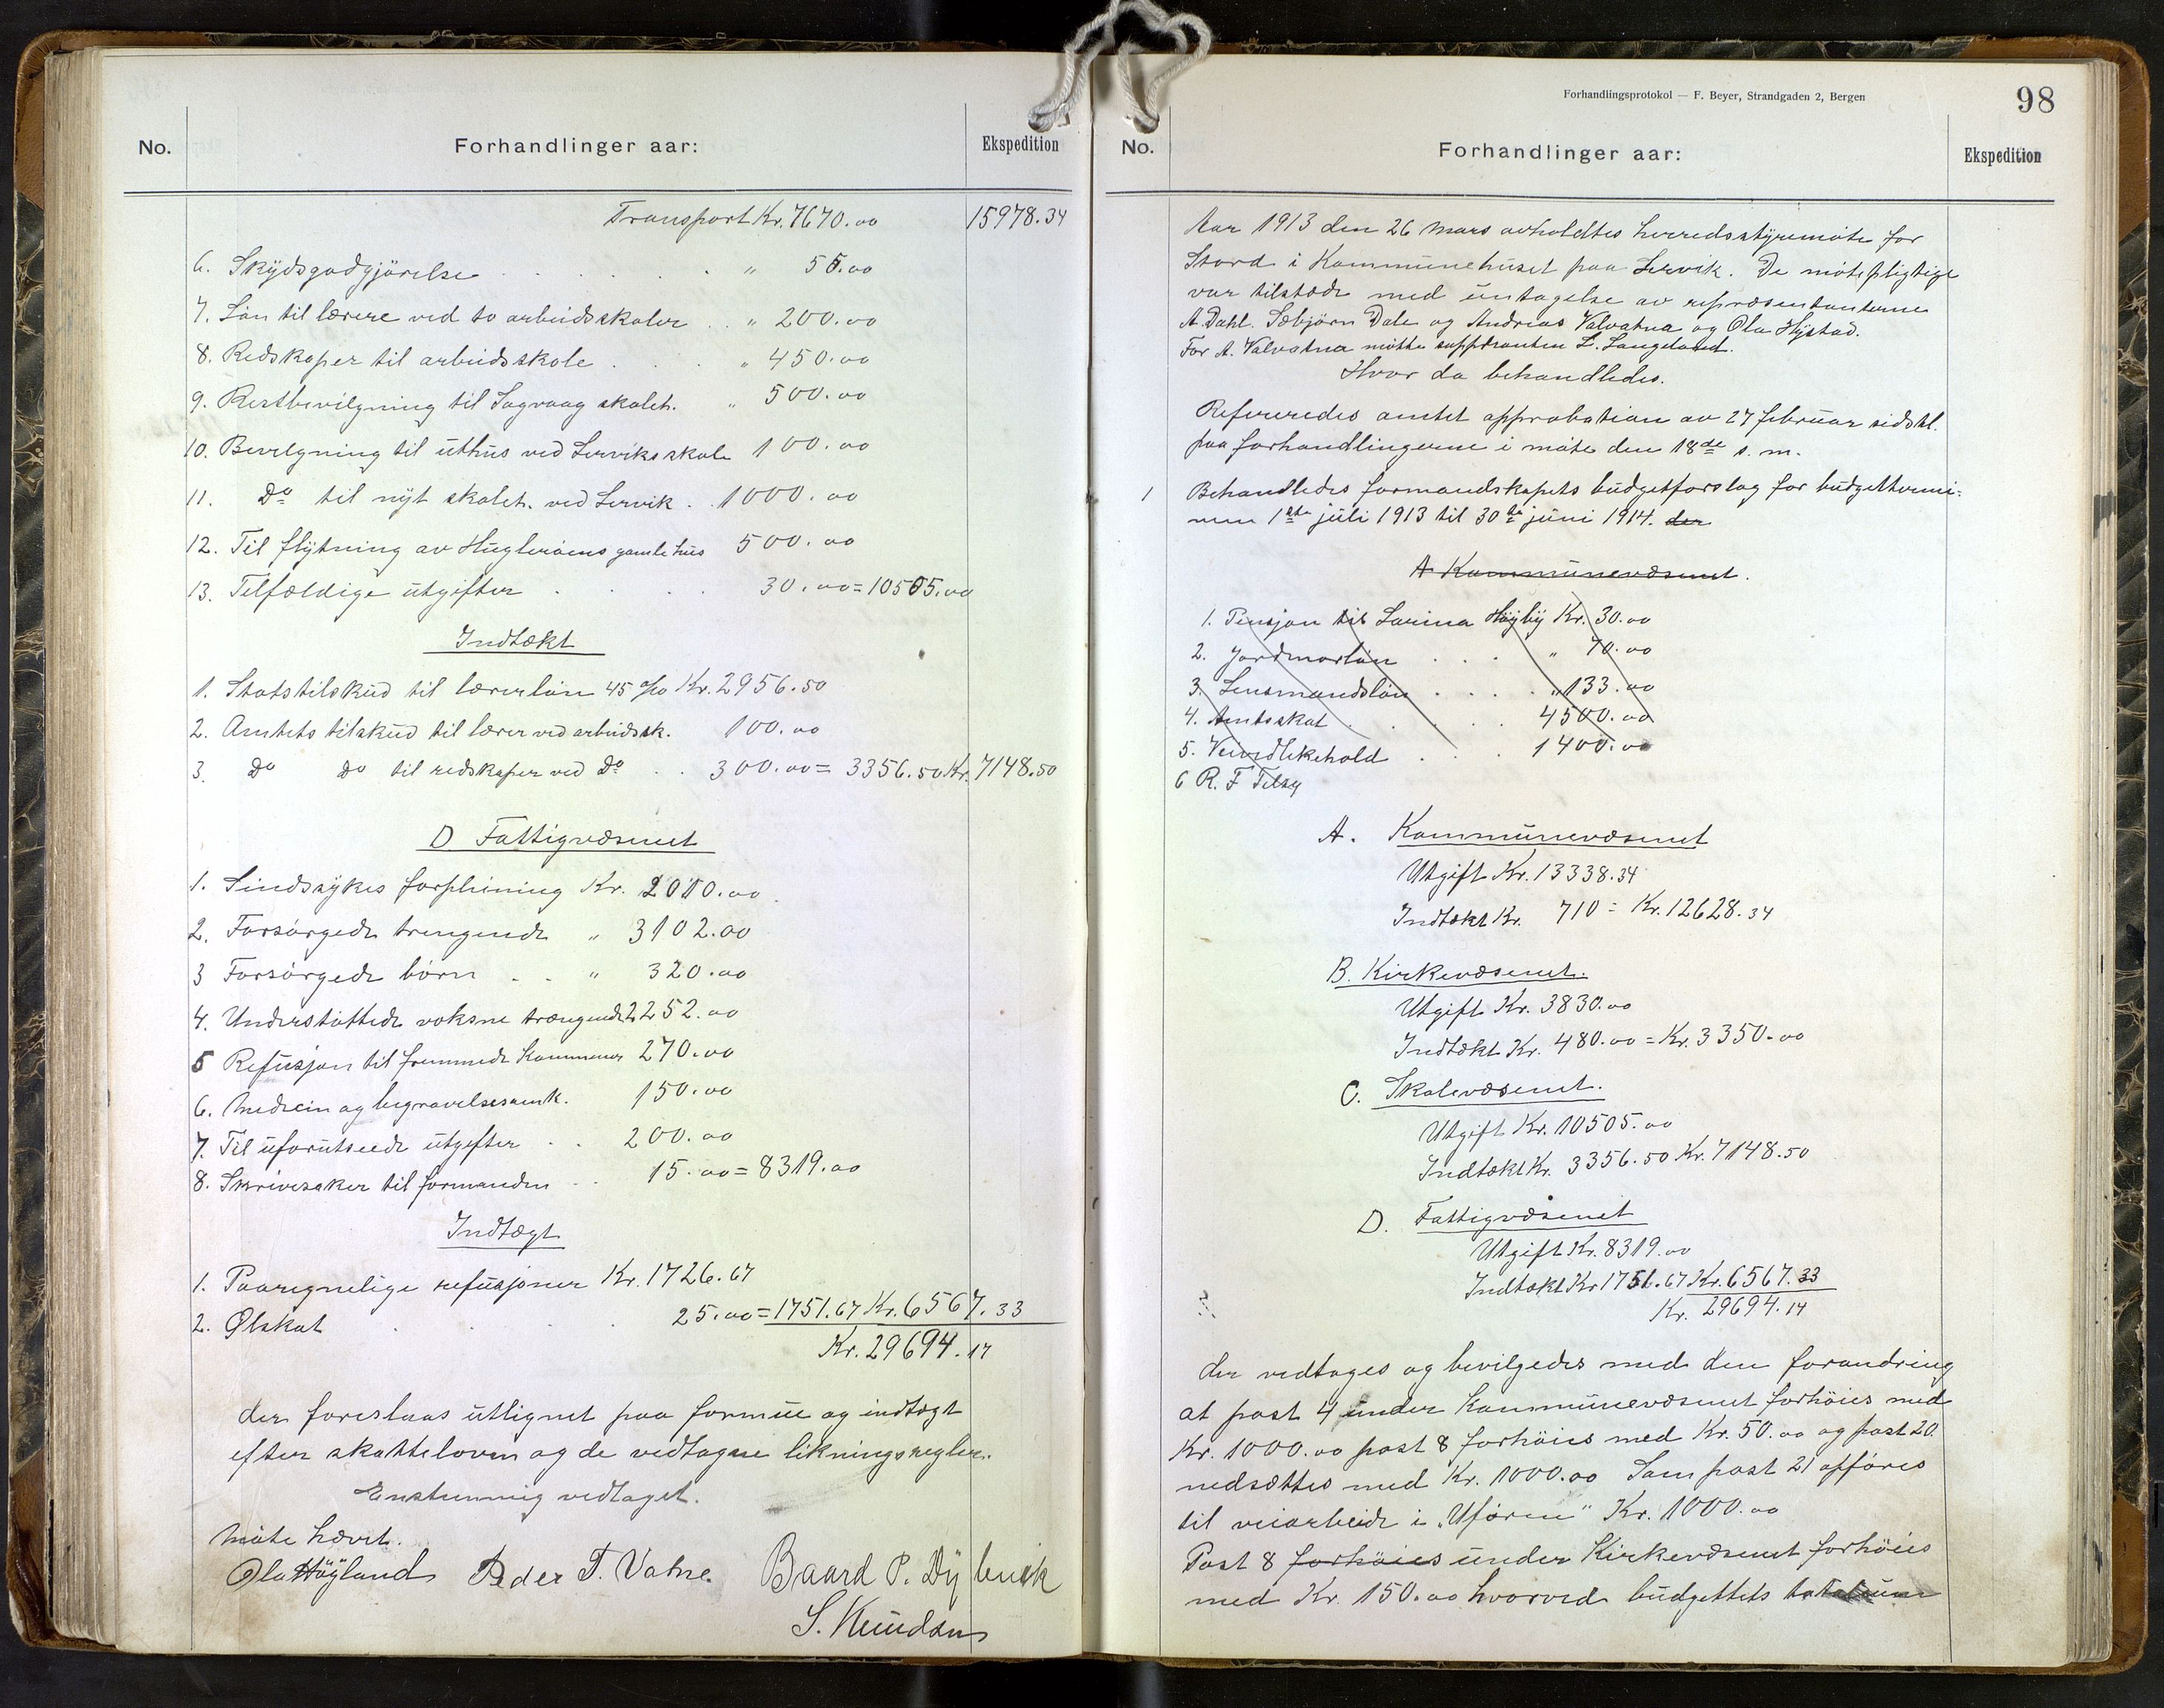 No. Forhandlinger aar: Ekspedition
Transport Kr. 7670.00 15978.34
6. Skydsgodgjörelse . . . . . " 55.00
7. Lön til lærere ved to arbeidsskoler . . " 200.00
8. Redskaper til arbeidsskole . . . " 450.00
9. Restbevilgning til Sagvaag skoleh. " 500.00
10. Bevilgning til uthus ved Lerviks skole 100.00
11. Do til nyt skoleh. ved Lervik . . 1000.00
12. Til flytning av Hugleröens gamle hus 500.00
13. Tilfældige utgifter . . . . 30.00 = 10505.00
Indtækt
1. Statstilskud til lærerlön 45 o/oo Kr. 2956.50
2. Amtets tilskud til lærer ved arbeidsk. 100.00
3. Do Do til redskaper ved Do . . 300.00 = 3356.50 Kr. 7148.50
D Fattigvæsenet
1. Sindsykes forpleining Kr. 2010.00
2. Forsörgede trengende " 3102.00
3 Forsörgede börn . . " 320.00
4. Understöttede voksne trængende 2252.00
5 Refusjon til fremmede kommuner 270.00
6. Medicin og begravelsesomk. 150.00
7. Til uforutseede utgifter . . 200.00
8. Skrivesaker til formanden . . 15.00 = 8319.00
Indtægt
1. Paaregnelige refusjoner Kr. 1726.67
2. Ølskat . . . . 25.00 = 1751.67 Kr. 6567.33
Kr. 29694.17
der foreslaas utlignet paa formue og indtægt
efter skatteloven og de vedtagne likningsregler.
Enstemmig vedtaget.
Möte hævet.
Ola Höyland Peder T. Vatne. Baard P. Dybevik
S. Knudsen
Forhandlingsprotokol — F. Beyer, Strandgaden 2, Bergen
98
No. Forhandlinger aar: Ekspedition
Aar 1913 den 26 mars avholdtes herredsstyremöte for
Stord i Kommunehuset paa Lervik. De mötepligtige
var tilstæde med untagelse av repræsentanterne
A. Dahl. Sæbjörn Dale og Andreas Valvatna og Ola Hystad.
For A. Valvatna mötte suppleanten L. Langeland.
Hvor da behandledes.
Refereredes amtet approbation av 27 februar sidstl.
paa forhandlingerne i möte den 18de s. m.
1 Behandledes formandskapets budgetforslag for budgettermi-
nen 1ste juli 1913 til 30te juni 1914. der
A Kommunevæsenet.
1. Pensjon til Larina Höyby Kr. 30.00
2. Jordmorlön . . . " 70.00
3. Lensmandslön . . . . " 133.00
4. Amtsskat . . . . 4500.00
5. Veivedlikehold . . . 1400.00
6 R. F Tilsy
A. Kommunevæsenet
Utgift Kr. 13338.34
Indtækt Kr. 710 = Kr. 12628.34
B. Kirkevæsenet.
Utgift Kr. 3830.00
Indtækt Kr. 480.00 = Kr. 3350.00
C. Skolevæsenet.
Utgift Kr. 10505.00
Indtækt Kr. 3356.50 Kr. 7148.50
D. Fattigvæsenet
Utgift Kr. 8319.00
Indtækt Kr 1751.67 Kr. 6567.33
Kr. 29694.17
der vedtages og bevilgedes med den forandring
at post 4 under Kommunevæsenet forhöies med
Kr. 1000.00 post 8 forhöies med Kr. 50.00 og post 20.
nedsættes med Kr. 1000.00 Som post 21 opföres
til veiarbeide i „Ufören" Kr. 1000.00
Post 8 forhöies under Kirkevæsenet forhöies
med Kr. 150.00 hvorved budgettets totalsum